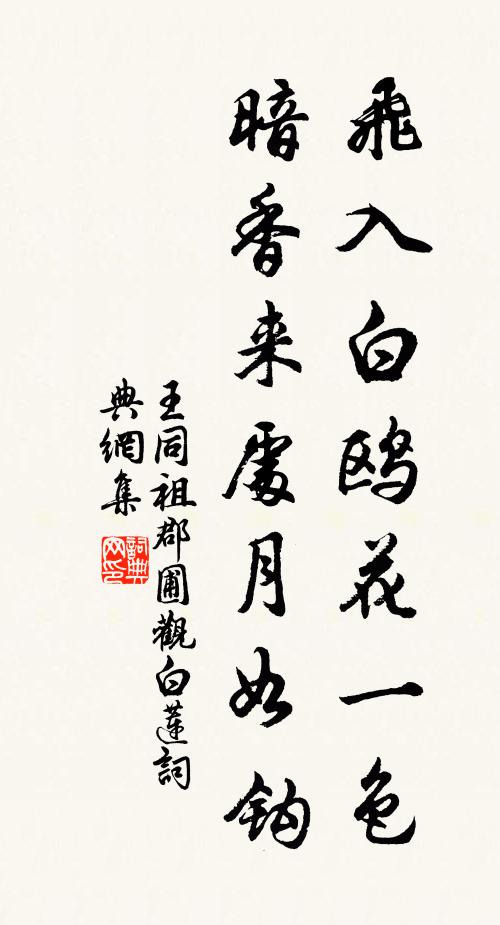 飛入白鷗花一色
暗香来處月如鈎
王同祖郡圃觀白蓮詞
典網集
詞典
网印